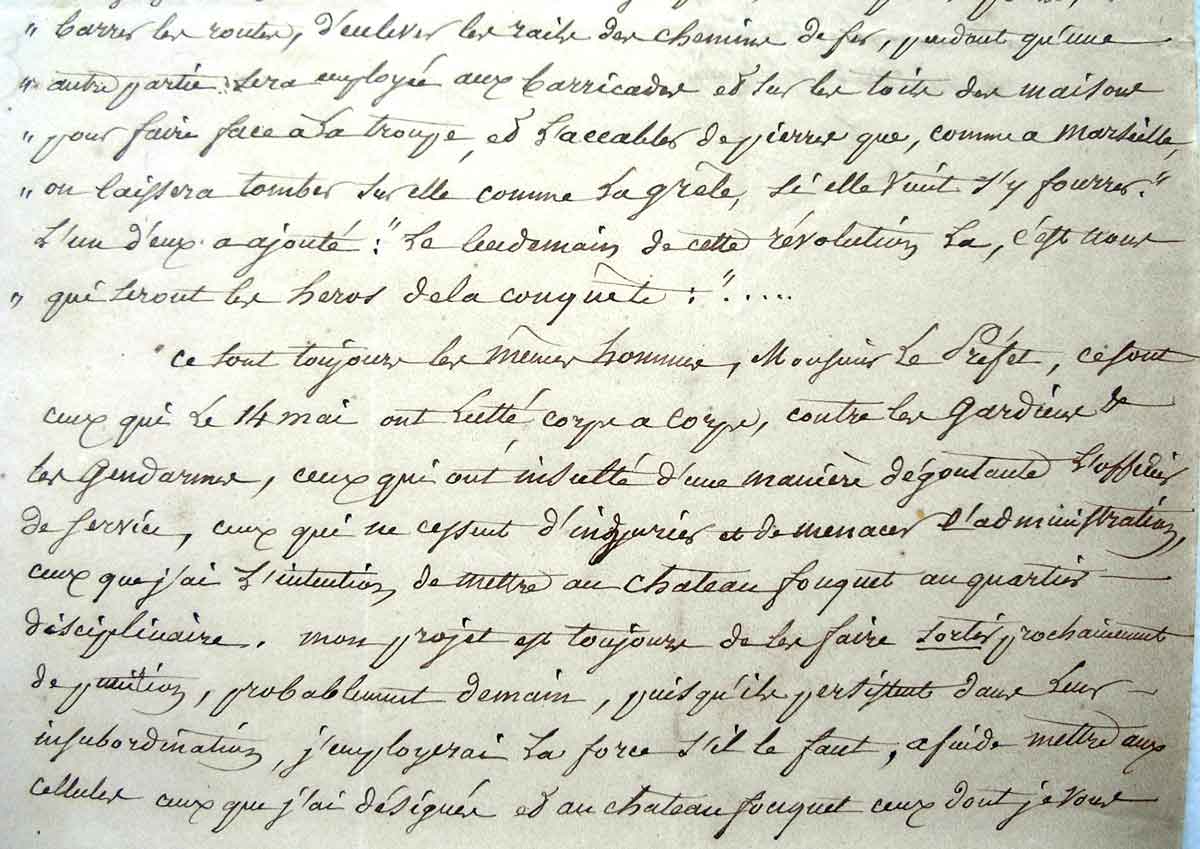 " barrer les routes, d'enlever les rails des chemins de fer, pendant qu'une
" autre partie sera employée aux barricades et sur les toits des maisons
" pour faire face à la troupe, et l'accabler de pierres que, comme a Marseille,
" on laissera tomber sur elle comme la grèle, si elle vient s'y fourrer."
L'un d'eux a ajouté : " Le lendemain de cette révolution la, c'est nous
" qui seront les heros de la conquête : ".....
Ce sont toujours les mêmes hommes, Monsieur Le Préfet, ce sont
ceux qui le 14 mai ont lutté corps a corps, contre les gardiens &
les gendarmes, ceux qui ont insulté d'une manière dégoutante l'officier
de service, ceux qui ne cessent d'injurier et de menacer l'administration,
ceux que j'ai l'intention de mettre au chateau fouquet au quartier
disciplinaire. mon projet est toujours de les faire sortir prochainement
de punition, probablement demain, puisqu'ils persistent dans leur
insubordination, j'employerai la force s'il le faut, afin de mettre aux
cellules ceux que j'ai désignés et au chateau fouquet ceux dont je vous